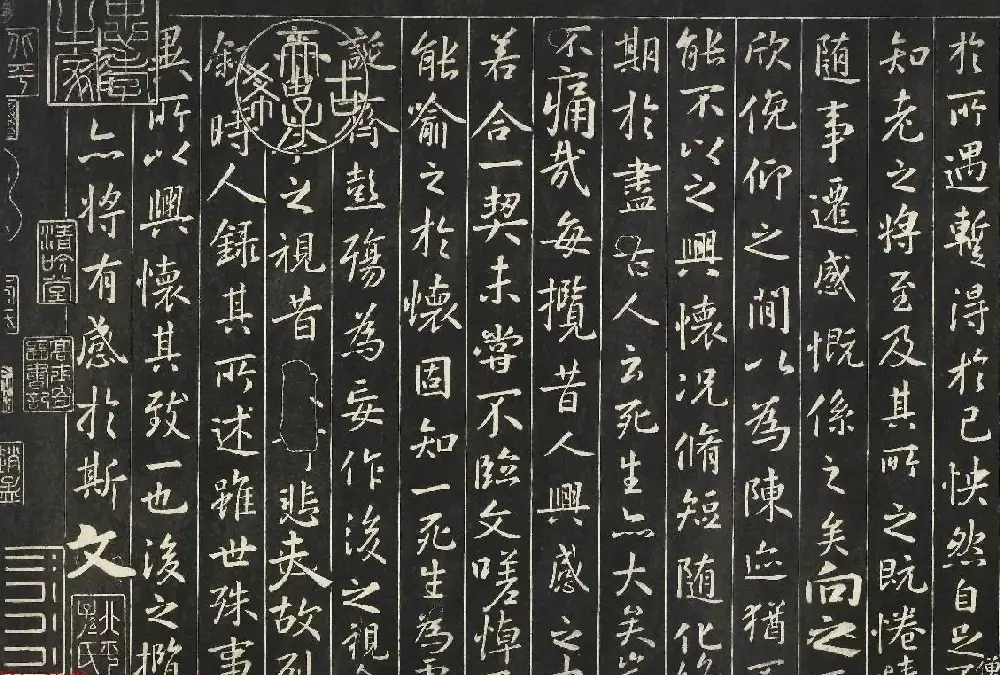 於所遇暫得於己怏然自足
知老之將至及其所之既惓
随事遷感慨係之矣向之
欣俛仰之閒以為陳迹猶不
能不以之興懷況脩短随化終
期於盡古人云死生亦大矣豈
不痛哉每攬昔人興感之由
若合一契未嘗不臨文嗟悼不
能喻之於懷固知一死生為虛
誕齊彭殤為妄作後之視今
亦由今之視昔悲夫故列
敘時人錄其所述雖世殊事
異所以興懷其致一也後之攬
亦將有感於斯文
清吟堂